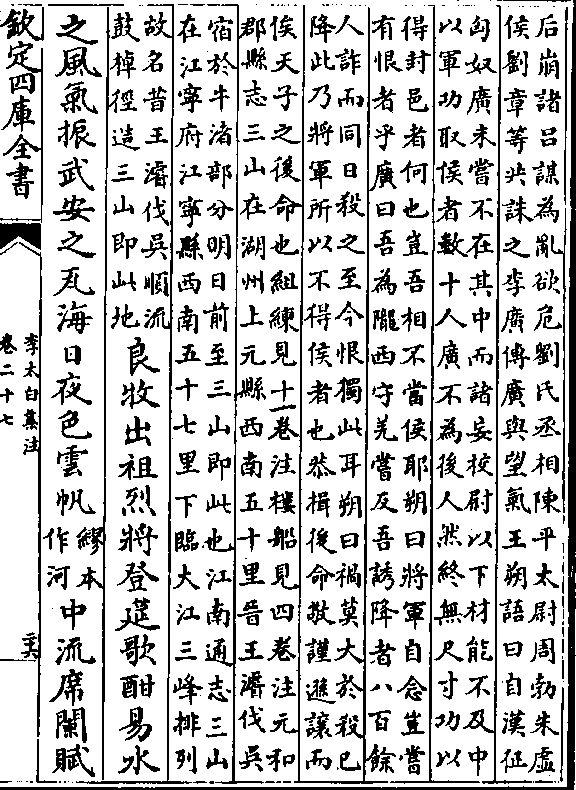 后崩諸呂謀為亂欲危劉氏丞相陳平太尉周勃朱虛
侯劉章等共誅之李廣傳廣與望氣王朔語曰自漢征
匈奴廣未嘗不在其中而諸妄校尉以下材能不及中
以軍功取侯者數十人廣不為後人然終無尺寸功以
得封邑者何也豈吾相不當侯耶朔曰將軍自念豈嘗
有恨者乎廣曰吾為隴西守羌嘗反吾誘降者八百餘
人詐而同日殺之至今恨獨此耳朔曰禍莫大於殺已
降此乃將軍所以不得侯者也恭揖後命敬謹遜讓而
俟天子之後命也組練見十一卷注樓船見四卷注元和
郡縣志三山在湖州上元縣西南五十里晉王濬伐吳
宿於牛渚部分明日前至三山即此也江南通志三山
在江寧府江寧縣西南五十七里下臨大江三峰排列
故名昔王濬伐吳順流
鼓棹徑造三山即此地
良牧出祖烈將登筵歌酣易水
之風氣振武安之瓦海日夜色雲帆
繆本
作河
中流席闌賦
欽定四庫全書
李太白集注
卷二十七